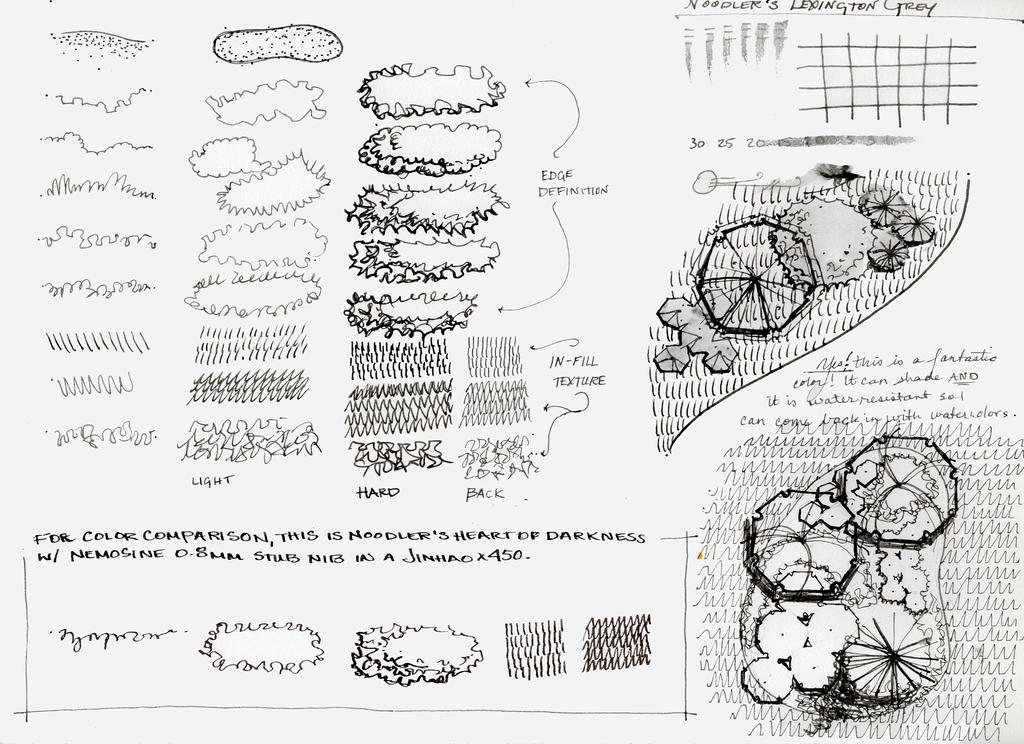 NOODLER'S LEXINGTON GREY
30 25 20 15 10 5 3 1
EDGE
DEFINITION
IN-FILL
TEXTURE
LIGHT
HARD
BACK
Yes! this is a fantastic
color! It can shade AND
it is water resistant so I
can come back in with watercolors.
FOR COLOR COMPARISON, THIS IS NOODLER'S HEART OF DARKNESS
W/ NEMOSINE 0.8MM STUB NIB IN A JINHAO X450.